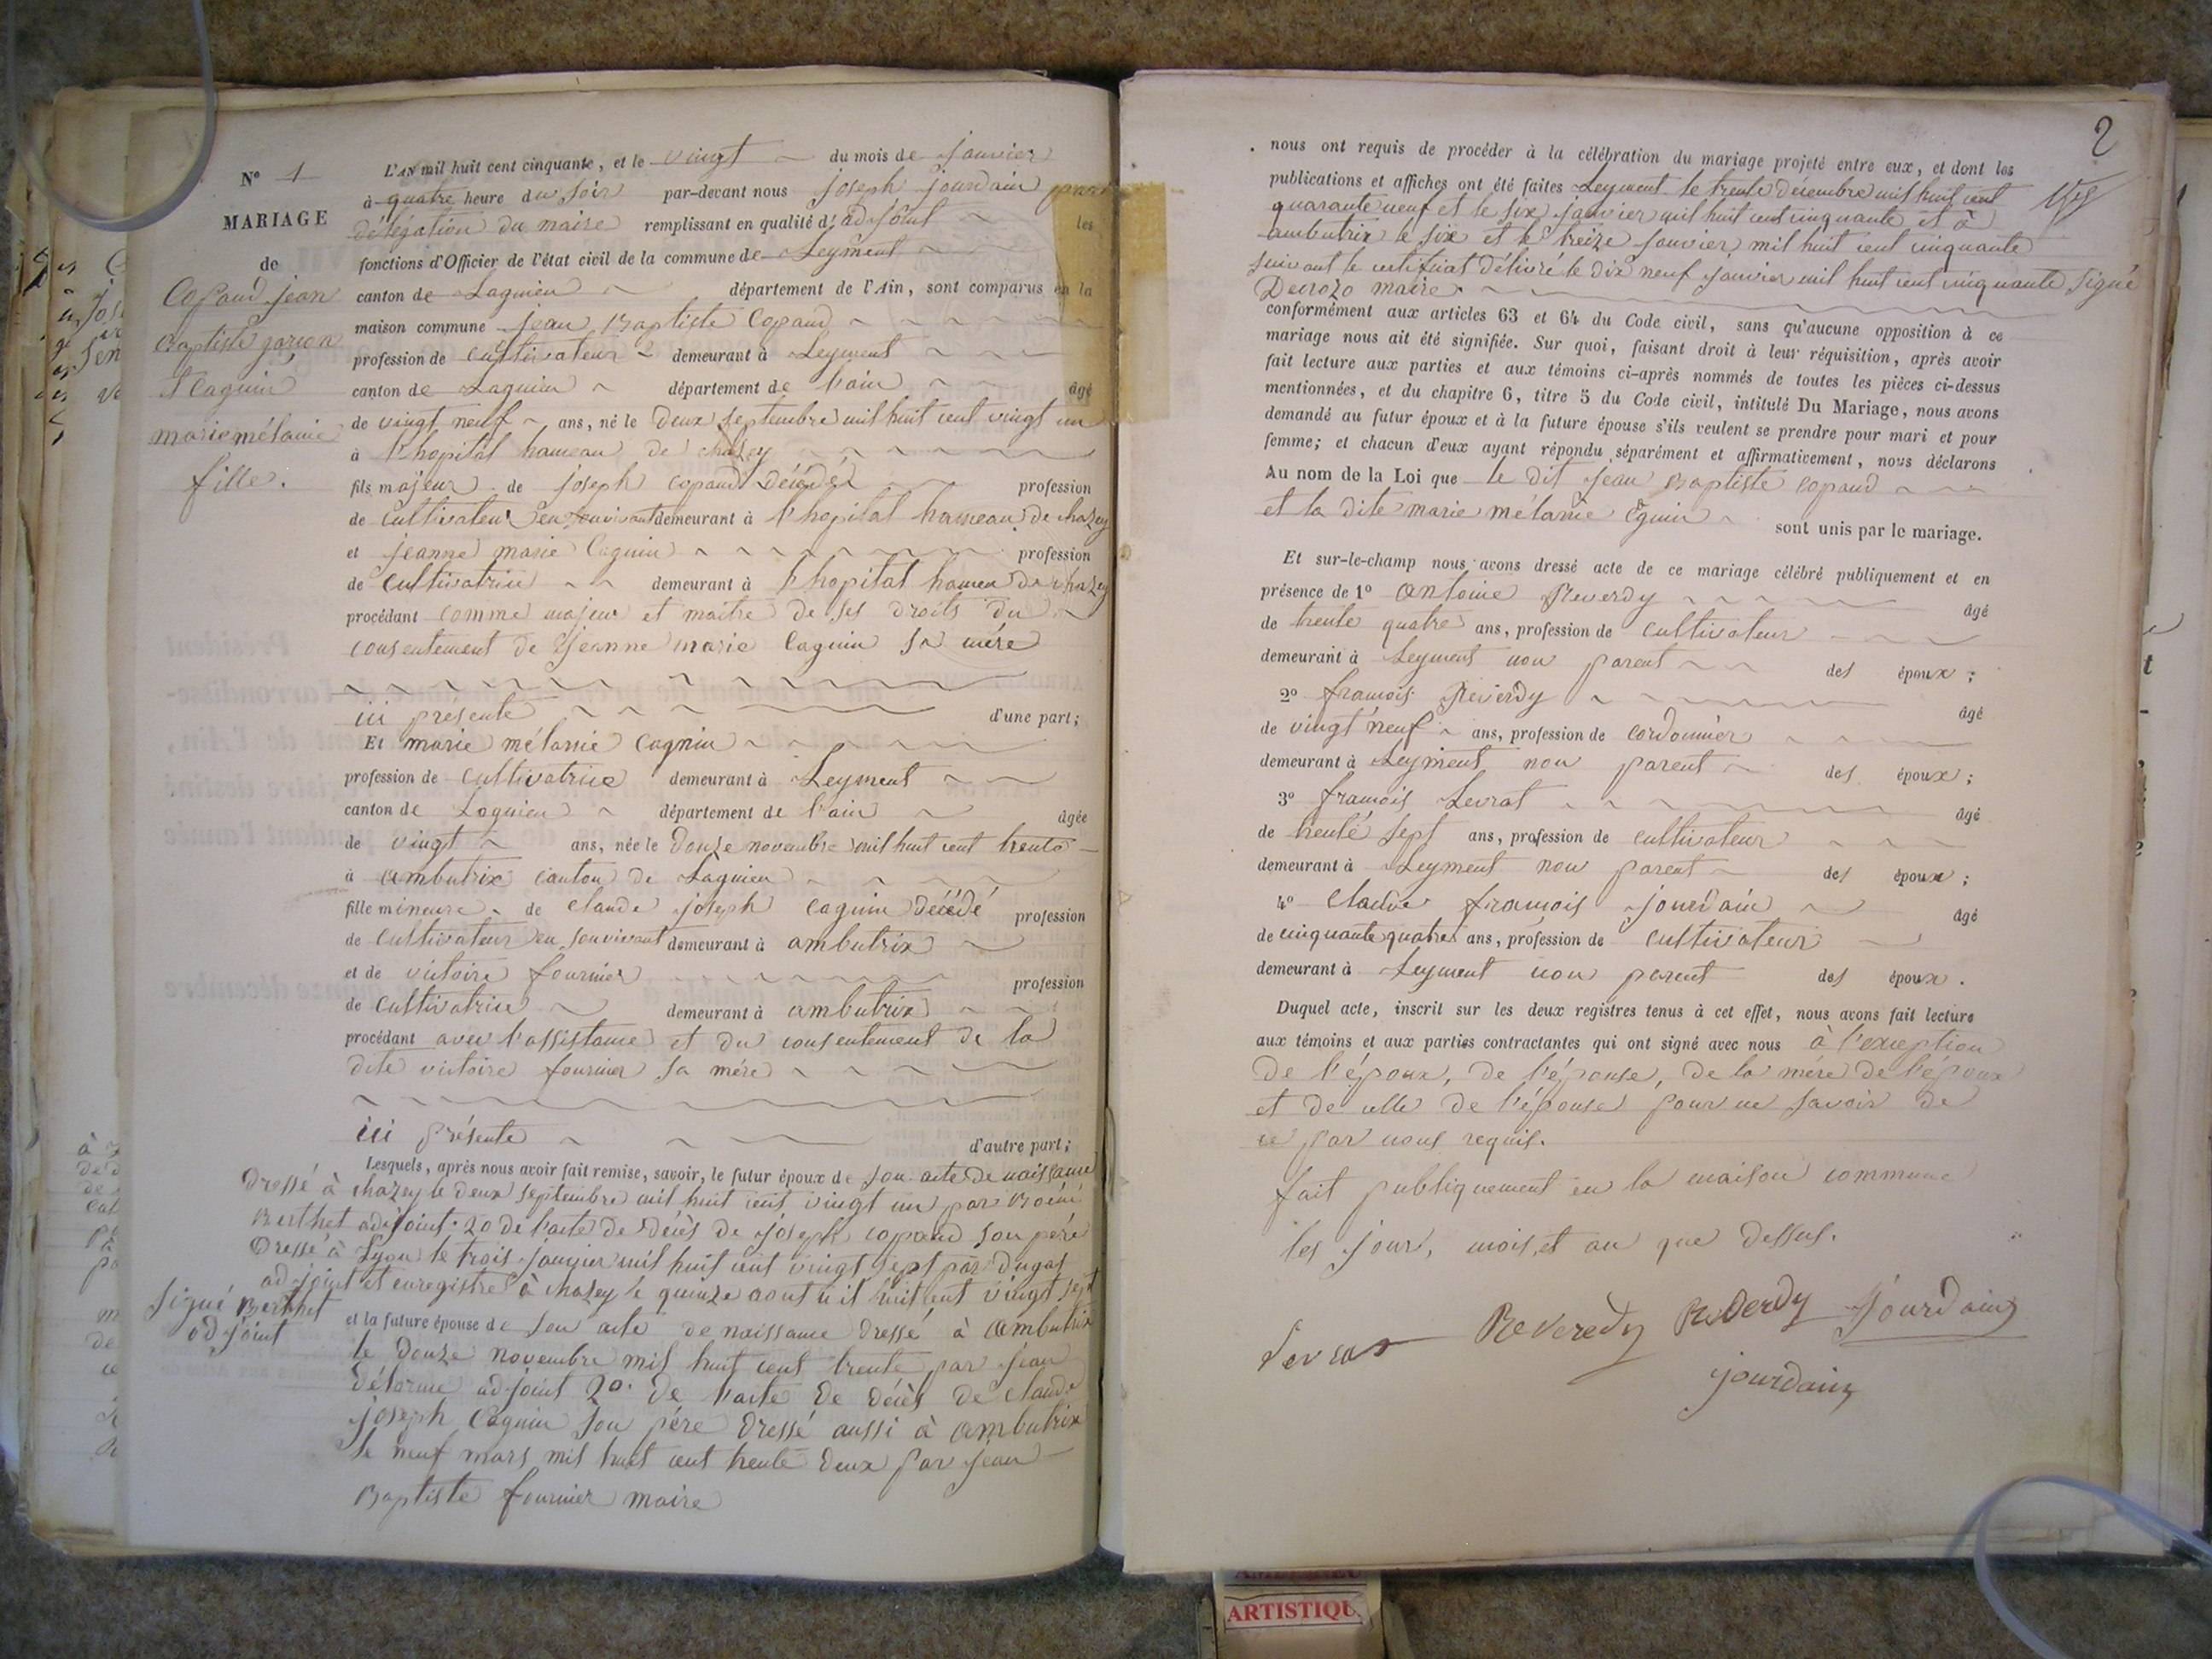 N° 1
MARIAGE
de
Copaud jean
Baptiste garçon
et Caguin
marie mélanie
fille.
L'AN mil huit cent cinquante, et le vingt du mois de janvier
à quatre heure du soir par-devant nous joseph jourdain par
délégation du maire remplissant en qualité d'adjoint les
fonctions d'Officier de l'état civil de la commune de Leyment
canton de Lagnieu département de l'Ain, sont comparus en la
maison commune jean Baptiste Copaud
profession de cultivateur demeurant à Leyment
canton de Lagnieu département de l'ain âgé
de vingt neuf ans, né le deux septembre mil huit cent vingt un
à l'hopital hameau de chazey
fils majeur de joseph copaud décédé profession
de cultivateur en souvivant demeurant à l'hopital hameau de chazey
et jeanne marie Caguin profession
de cultivatrice demeurant à l'hopital hameau de chazey
procédant comme majeur et maitre de ses droits du
consentement de jeanne marie Caguin sa mére
ici presente d'une part;
Et marie mélanie Caguin
profession de cultivatrice demeurant à Leyment
canton de Lagnieu département de l'ain âgée
de vingt ans, née le douze novembre mil huit cent trente
à ambutrix canton de Lagnieu
fille mineure de claude joseph Caguin décédé profession
de cultivateur en souvivant demeurant à ambutrix
et de victoire fournier profession
de cultivatrice demeurant à ambutrix
procédant avec l'assistance et du consentement de la
dite victoire fournier sa mére
ici présente d'autre part;
Lesquels, après nous avoir fait remise, savoir, le futur époux de son acte de naissance
Dressé à chazey le deux septembre mil huit cent vingt un par
Berthet adjoint. 2o de l'acte de décès de joseph copaud son pére
Dressé à Lyon le trois janvier mil huit cent vingt sept par Dugas
adjoint et enregistré à chazey le quinze aout mil huit cent vingt sept
signé Berthet
adjoint
et la future épouse de son acte de naissance dressé à ambutrix
le douze novembre mil huit cent trente par jean
Délorme adjoint 2o. de l'acte de décès de claude
joseph Caguin son pére dressé aussi à ambutrix
le neuf mars mil huit cent trente deux par jean
Baptiste fournier maire
2
nous ont requis de procéder à la célébration du mariage projeté entre eux, et dont les
publications et affiches ont été faites Leyment le trente decembre mil huit cent
quarante neuf et le six janvier mil huit cent cinquante et à
ambutrix le six et le treize janvier mil huit cent cinquante
suivant le certificat délivré le dix neuf janvier mil huit cent cinquante signé
Decrozo maire.
conformément aux articles 63 et 64 du Code civil, sans qu'aucune opposition à ce
mariage nous ait été signifiée. Sur quoi, faisant droit à leur réquisition, après avoir
fait lecture aux parties et aux témoins ci-après nommés de toutes les pièces ci-dessus
mentionnées, et du chapitre 6, titre 5 du Code civil, intitulé Du Mariage, nous avons
demandé au futur époux et à la future épouse s'ils veulent se prendre pour mari et pour
femme; et chacun d'eux ayant répondu séparément et affirmativement, nous déclarons
Au nom de la Loi que le dit jean Baptiste copaud
et la dite marie mélanie Caguin sont unis par le mariage.
Et sur-le-champ nous avons dressé acte de ce mariage célébré publiquement et en
présence de 1° antoine Reverdy âgé
de trente quatre ans, profession de cultivateur
demeurant à Leyment non parent des époux;
2° francois Reverdy âgé
de vingt neuf ans, profession de cordonnier
demeurant à Leyment non parent des époux;
3° francois Levrat âgé
de trente sept ans, profession de cultivateur
demeurant à Leyment non parent des époux;
4° claude francois jourdain âgé
de cinquante quatre ans, profession de cultivateur
demeurant à Leyment non parent des époux.
Duquel acte, inscrit sur les deux registres tenus à cet effet, nous avons fait lecture
aux témoins et aux parties contractantes qui ont signé avec nous à l'exception
De l'époux, de l'épouse, de la mére de l'époux
et de celle de l'épouse pour ne savoir de
ce par nous requis.
fait publiquement en la maison commune
les jour, mois, et an que dessus.
Reveredy Reverdy Jourdain
jourdain
ARTISTIQU